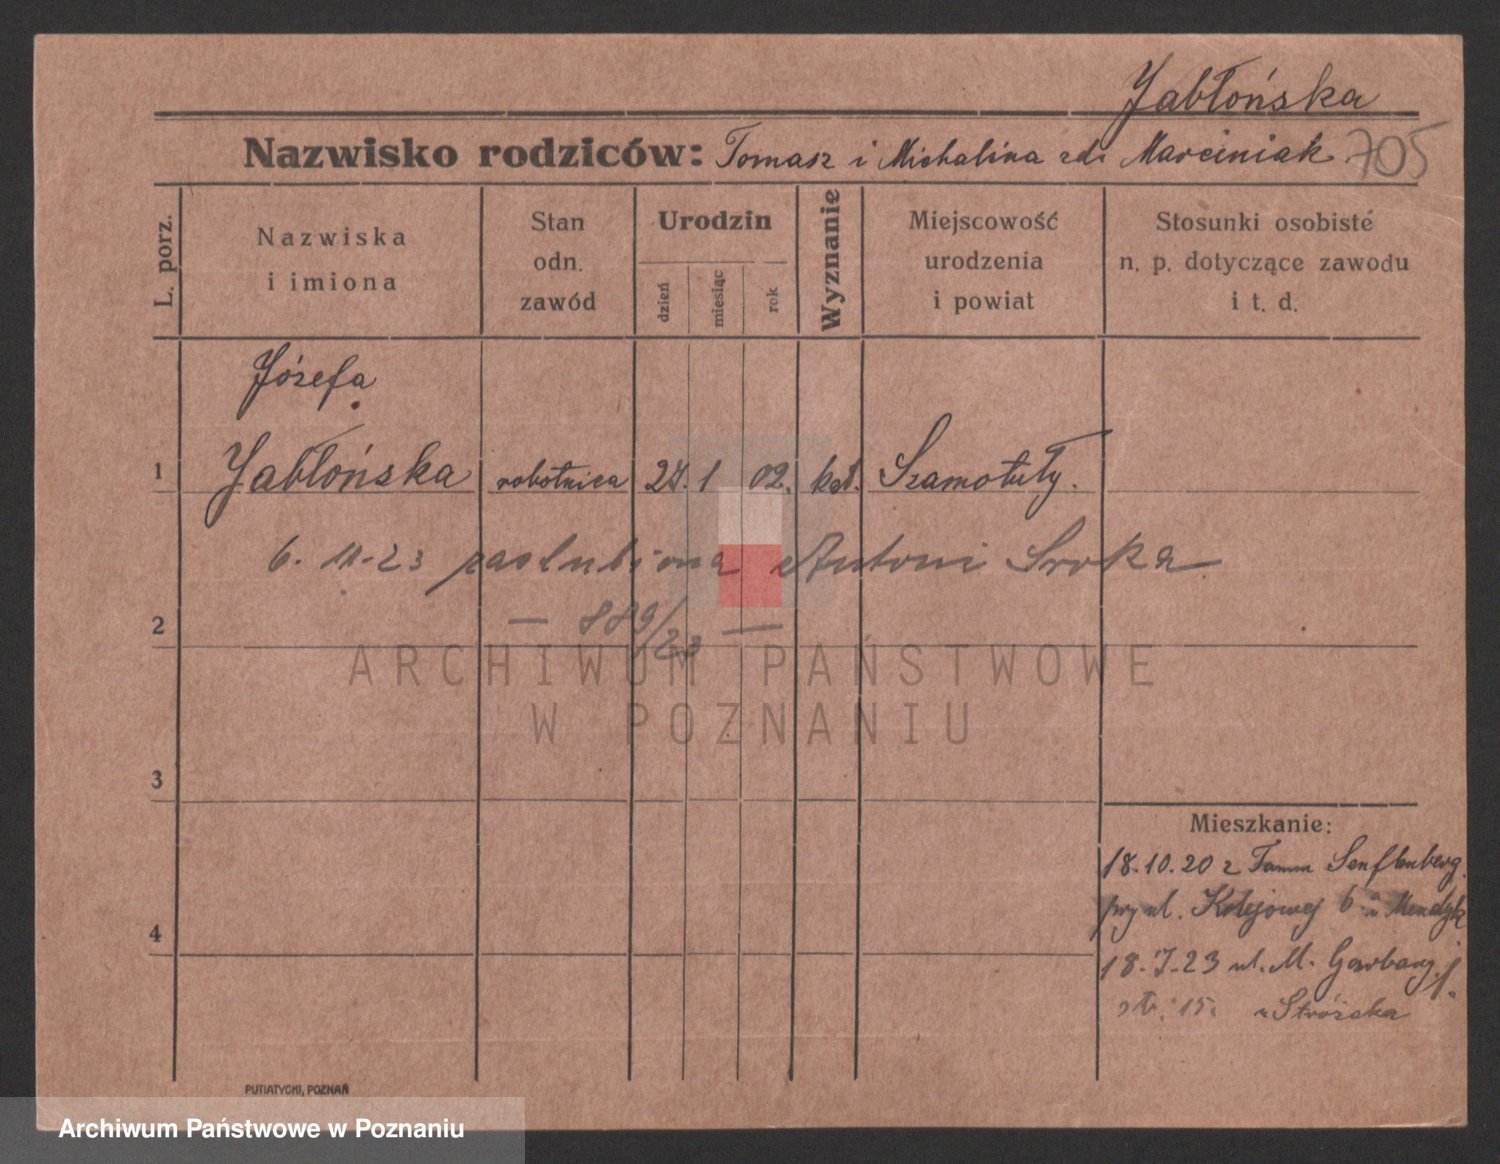 Jabłońska
Nazwisko rodziców: Tomasz i Michalina zd. Marciniak
705
L. porz.
Nazwiska
i imiona
Stan
odn.
zawód
Urodzin
dzień
miesiąc
rok
Wyznanie
Miejscowość
urodzenia
i powiat
Stosunki osobiste
n. p. dotyczące zawodu
i t. d.
Józefa
1 Jabłońska robotnica 27. 1 02. kat. Szamotuły.
6. 11-23 zaślubiona Antoni Sroka
2 — 889/23 —
ARCHIWUM PAŃSTWOWE
W POZNANIU
3
Mieszkanie:
18.10.20 z Senftenberg
przy ul. Kolejowej 6 u
4
18.7.23 ul. M. Garbary 1.
15. u Stróżska
PUTIATYCKI, POZNAŃ
Archiwum Państwowe w Poznaniu